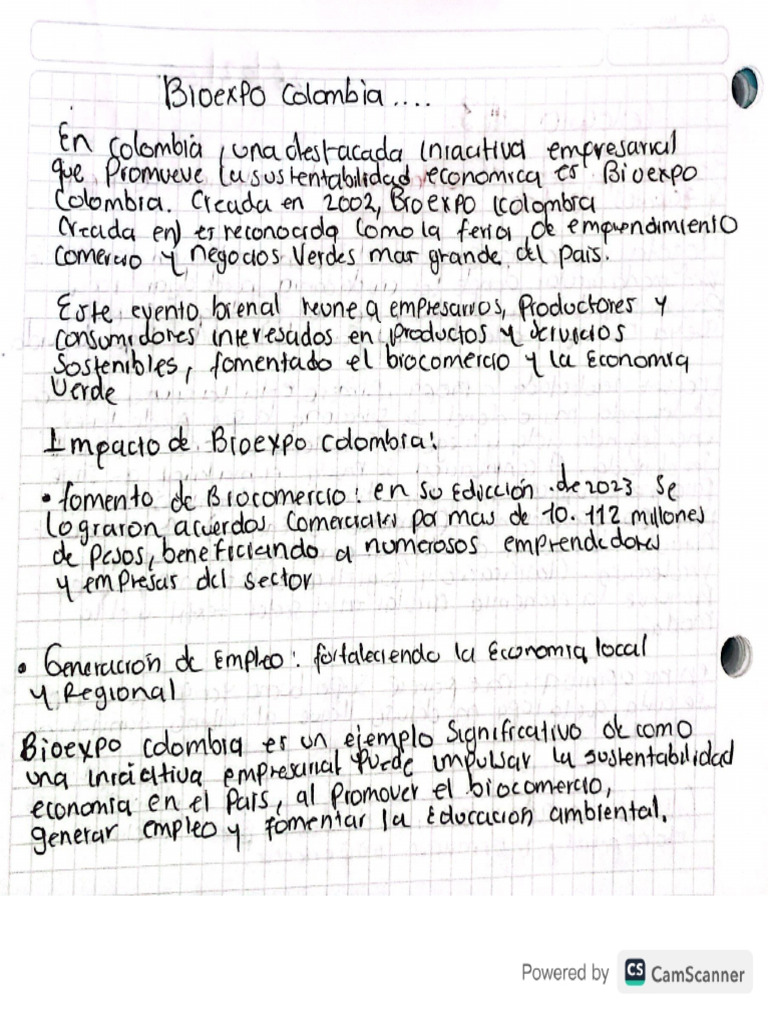 Bioexpo Colombia....
En Colombia, una destacada iniciativa empresarial
que Promueve la sustentabilidad economica es Bioexpo
Colombia. Creada en 2002, Bioexpo (Colombia
Creada en) es reconocida como la feria de emprendimiento
comercio y negocios Verdes mas grande del pais.
Este evento bienal reune a empresarios, Productores y
consumidores interesados en productos y servicios
Sostenibles, fomentado el biocomercio y la Economia
Verde
Impacto de Bioexpo colombia:
• fomento de Biocomercio: en su Edicción de 2023 se
lograron acuerdos Comerciales por mas de 10.112 millones
de pesos, beneficiando a numerosos emprendedores
y empresas del sector
• Generación de Empleo: fortaleciendo la Economia local
y Regional
Bioexpo colombia es un ejemplo significativo de como
una iniciativa empresarial Puede impulsar la sustentabilidad
economia en el Pais, al Promover el biocomercio,
generar empleo y fomentar la Educacion ambiental.
Powered by CS CamScanner